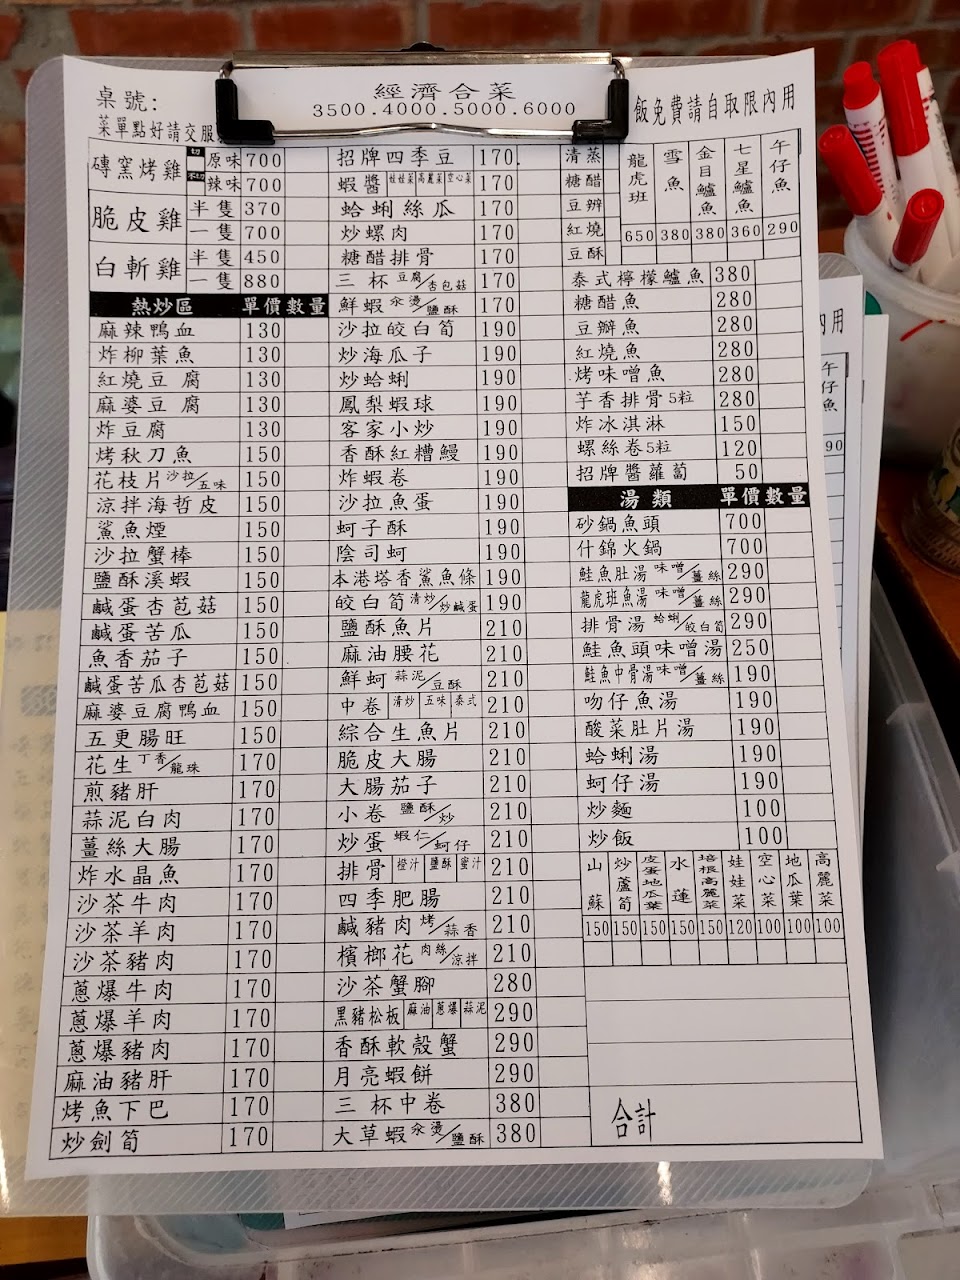 經濟合菜
3500.4000.5000.6000
桌號:
菜單點好請交服
飯免費請自取限內用
磚窯烤雞 切 原味 700
不切 辣味 700
脆皮雞 半隻 370
一隻 700
白斬雞 半隻 450
一隻 880
熱炒區 單價 數量
麻辣鴨血 130
炸柳葉魚 130
紅燒豆腐 130
麻婆豆腐 130
炸豆腐 130
烤秋刀魚 150
花枝片 沙拉/五味 150
涼拌海哲皮 150
鯊魚煙 150
沙拉蟹棒 150
鹽酥溪蝦 150
鹹蛋杏苞菇 150
鹹蛋苦瓜 150
魚香茄子 150
鹹蛋苦瓜杏苞菇 150
麻婆豆腐鴨血 150
五更腸旺 150
花生 丁香/龍珠 170
煎豬肝 170
蒜泥白肉 170
薑絲大腸 170
炸水晶魚 170
沙茶牛肉 170
沙茶羊肉 170
沙茶豬肉 170
蔥爆牛肉 170
蔥爆羊肉 170
蔥爆豬肉 170
麻油豬肝 170
烤魚下巴 170
炒劍筍 170
招牌四季豆 170.
蝦醬 娃娃菜 高麗菜 空心菜 170
蛤蜊絲瓜 170
炒螺肉 170
糖醋排骨 170
三杯 豆腐/杏包菇 170
鮮蝦 汆燙/鹽酥 170
沙拉皎白筍 190
炒海瓜子 190
炒蛤蜊 190
鳳梨蝦球 190
客家小炒 190
香酥紅糟鰻 190
炸蝦卷 190
沙拉魚蛋 190
蚵子酥 190
陰司蚵 190
本港塔香鯊魚條 190
皎白筍 清炒/炒鹹蛋 190
鹽酥魚片 210
麻油腰花 210
鮮蚵 蒜泥/豆酥 210
中卷 清炒 五味 泰式 210
綜合生魚片 210
脆皮大腸 210
大腸茄子 210
小卷 鹽酥/炒 210
炒蛋 蝦仁/蚵仔 210
排骨 橙汁 鹽酥 蜜汁 210
四季肥腸 210
鹹豬肉 烤/蒜香 210
檳榔花 肉絲/涼拌 210
沙茶蟹腳 280
黑豬松板 麻油 蔥爆 蒜泥 290
香酥軟殼蟹 290
月亮蝦餅 290
三杯中卷 380
大草蝦 汆燙/鹽酥 380
清蒸
糖醋
豆瓣
紅燒
豆酥
龍虎班 650
雪魚 380
金目鱸魚 380
七星鱸魚 360
午仔魚 290
泰式檸檬鱸魚 380
糖醋魚 280
豆瓣魚 280
紅燒魚 280
烤味噌魚 280
芋香排骨5粒 280
炸冰淇淋 150
螺絲卷5粒 120
招牌醬蘿蔔 50
湯類 單價 數量
砂鍋魚頭 700
什錦火鍋 700
鮭魚肚湯 味噌/薑絲 290
龍虎班魚湯 味噌/薑絲 290
排骨湯 蛤蜊/皎白筍 290
鮭魚頭味噌湯 250
鮭魚中骨湯 味噌/薑絲 190
吻仔魚湯 190
酸菜肚片湯 190
蛤蜊湯 190
蚵仔湯 190
炒麵 100
炒飯 100
山蘇 150
炒蘆筍 150
皮蛋地瓜葉 150
水蓮 150
培根高麗菜 150
娃娃菜 120
空心菜 100
地瓜葉 100
高麗菜 100
合計
內用
午仔魚
90